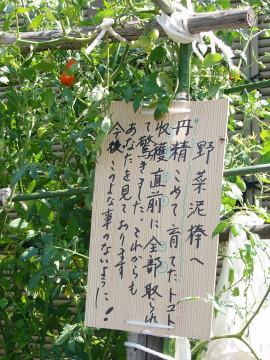 野菜泥棒へ
丹精こめて育てたトマト
収穫直前に全部取られ
て驚きました これからも
あなたを見ております
今後こうような事のないように!